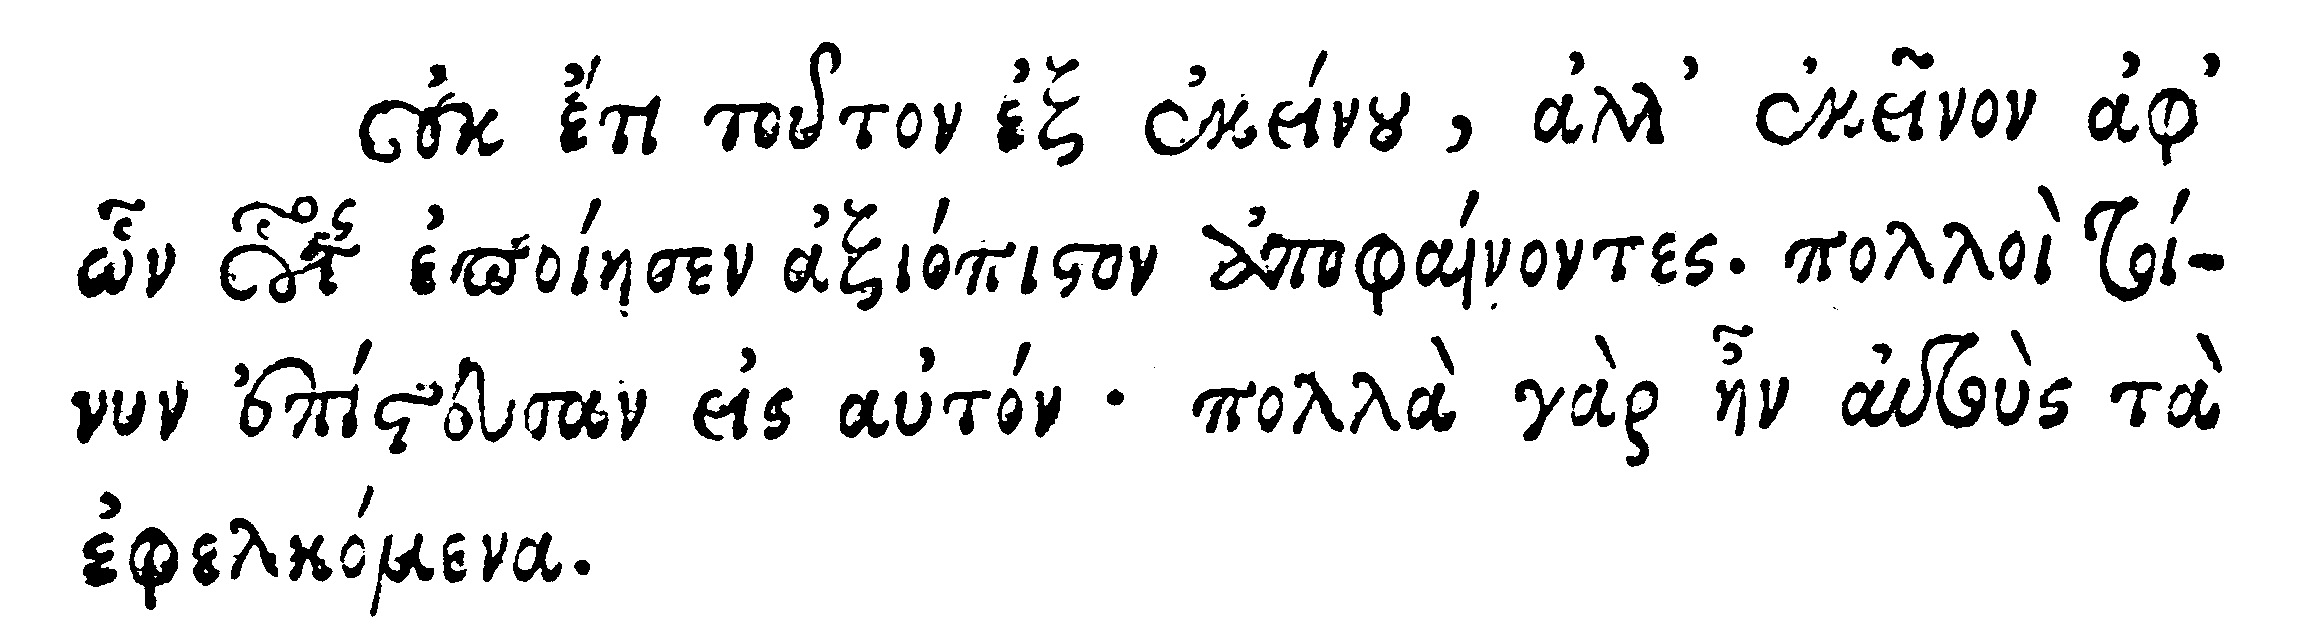 οὐκ ἔτι τοῦτον ἐξ ἐκείνου, ἀλλ' ἐκεῖνον ἀφ'
ὧν οὗτος ἐποίησεν ἀξιόπιστον ἀποφαίνοντες. πολλοὶ τοί-
νυν ἐπίστευσαν εἰς αὐτόν· πολλὰ γὰρ ἦν αὐτοὺς τὰ
ἐφελκόμενα.